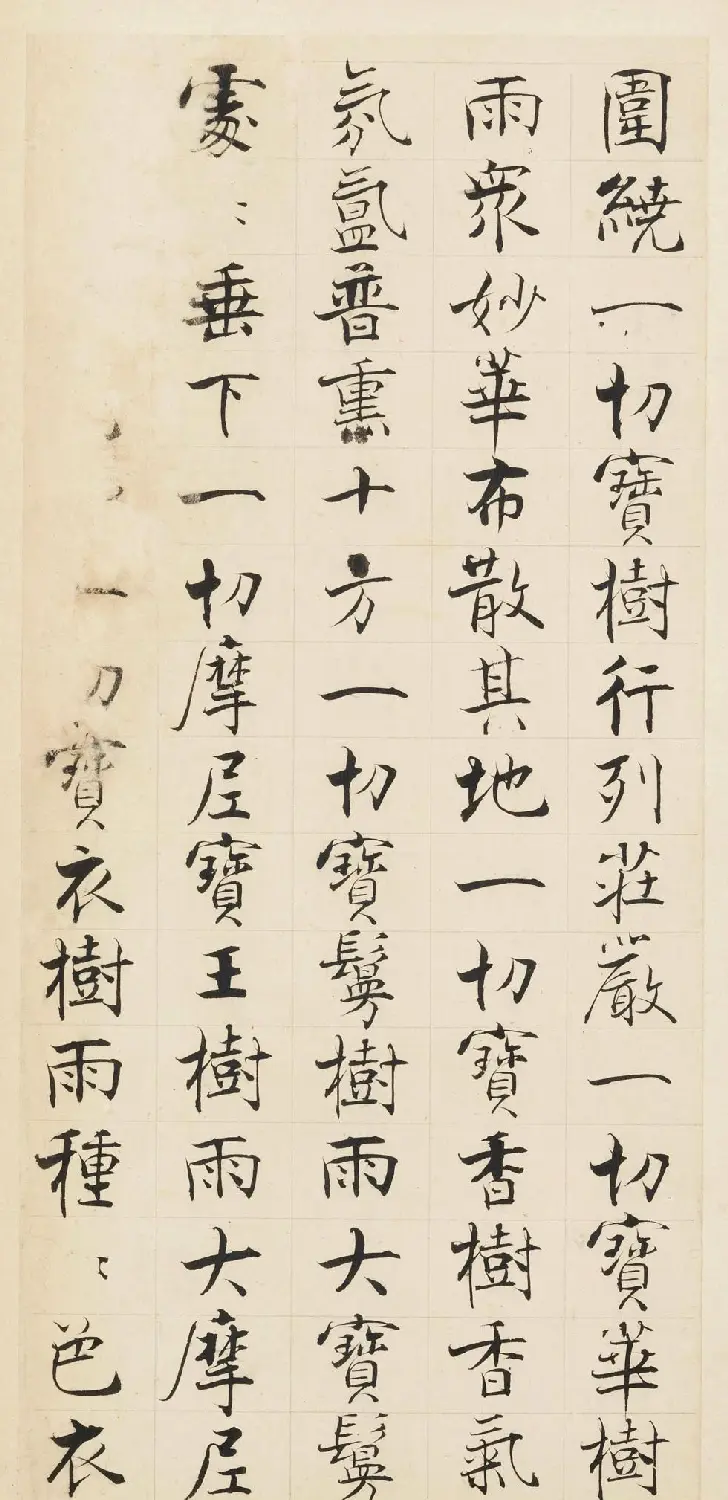 圍繞一切寶樹行列莊嚴一切寶華樹
雨眾妙華布散其地一切寶香樹香氣
氛氳普熏十方一切寶鬘樹雨大寶鬘
處〻垂下一切摩尼寶王樹雨大摩尼
一切寶衣樹雨種〻色衣